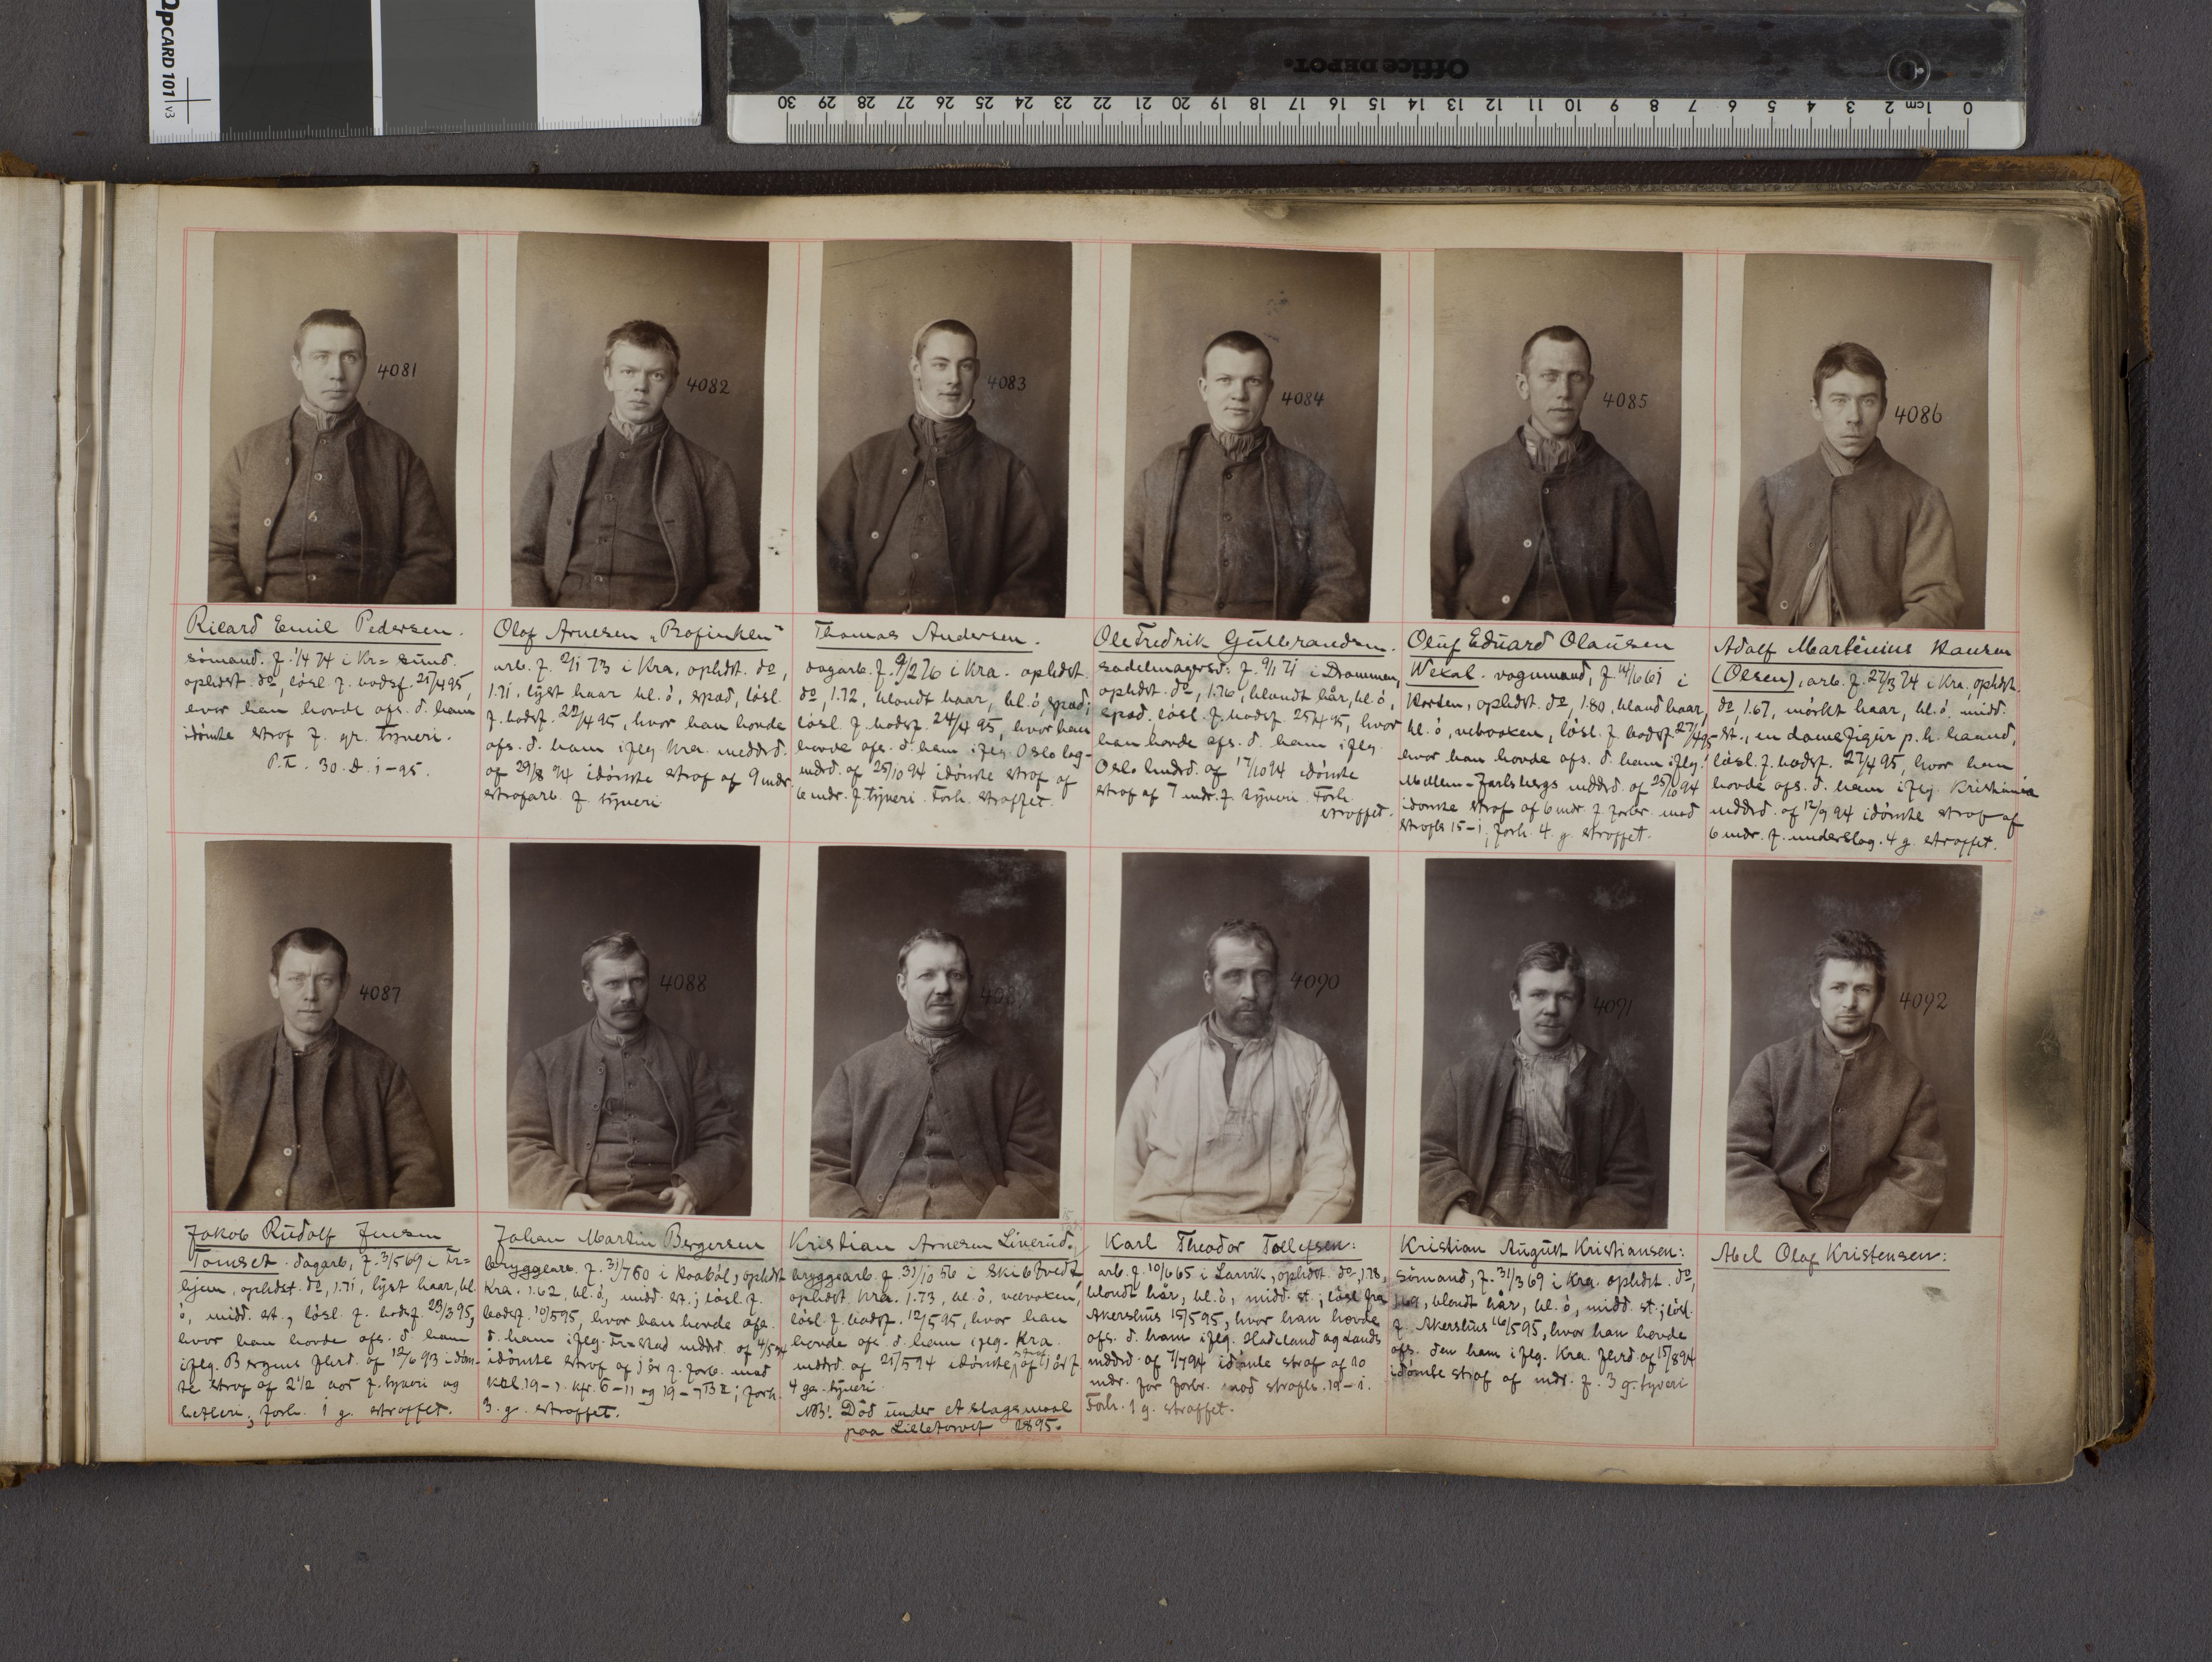 OpCARD 101 v3
Office DEPOT.
0 1 cm 2 3 4 5 6 7 8 9 10 11 12 13 14 15 16 17 18 19 20 21 22 23 24 25 26 27 28 29 30
4081
4082
4083
4084
4085
4086
Ricard Emil Pedersen.
sömand. f. 1/4 74 i Kr=sund.
ophdst do, lösl. f. bodsf. 21/4 95,
hvor han havde afs. d. ham
idömte straf f. gr. tyveri.
P.T. 30. d. 1-95.
Olaf Arnesen „Bofinken"
arb. f. 2/1 73 i Kra, ophdst. do,
1.71. lyst haar bl. ö, spæd, lösl.
f. bodsf. 22/4 95, hvor han havde
afs. d. ham iflg Kra. meddrd.
af 29/8 94 idömte straf af 9 mdr.
strafarb. f. tyveri
Thomas Andersen.
dagarb. f. 9/2 76 i Kra. ophdst.
do, 1.72, blondt haar, bl. ö, spæd;
lösl. f. bodsf. 24/4 95, hvor han
havde afs. d. ham iflg. Oslo lag-
mdrd. af 25/10 94 idömte straf af
6 mdr. f. tyveri. Forh. straffet.
Ole Fredrik Gulbrandsen.
sadelmagersv. f. 9/1 71 i Drammen,
ophdst. do, 1.76, blondt hår, bl. ö,
spæd. lösl. f. bodsf. 25/4 95, hvor
han havde afs. d. ham iflg.
Oslo lmdrd. af 17/10 94 idömte
straf af 7 mdr. f. tyveri. Forh.
straffet.
Oluf Eduard Olausen
Wekal. vognmand, f. 14/6 61 i
Horten, ophdst. do, 1.80, bland haar,
bl. ö, velvoxen, lösl. f. bodsf. 27/4 95
hvor han havde afs. d. ham iflg.
Mellem-Jarlsbergs mddrd. af 25/10 94
idömte straf af 6 mdr. f. forbr. mod
strafls 15-1, forh. 4. g. straffet.
Adolf Martinius Hansen
(Olsen), arb. f. 27/3 74 i Kra, ophdst.
do, 1.67, mörkt haar, bl. ö. midd.
st., en damefigur p. h. haand,
lösl. f. bodsf. 27/4 95, hvor han
havde afs. d. ham iflg. Kristiania
mddrd. af 12/9 94 idömte straf af
6 mdr. f. underslag. 4 g. straffet.
4087
4088
4090
4091
4092
Jakob Rudolf Jensen
Tomset. dagarb, f. 3/5 69 i Tr=
hjem, ophdst. do, 1.71, lyst haar, bl.
ö, midd. st., lösl. f. bodsf. 23/3 95,
hvor han havde afs. d. ham
iflg. Bergens fhrd. af 12/6 93 idöm-
te straf af 2 1/2 aar f. tyveri og
hæleri; forh. 1 g. straffet.
Johan Martin Bergersen
bryggearb. f. 31/7 60 i Raaböl, ophdst
Kra. 1.62, bl. ö, midd. st.; lösl. f.
bodsf. 10/5 95, hvor han havde afs.
d. ham iflg. Fr.stad mddrd. af 4/5 94
idömte straf af 1 år f. forb. mod
Kal. 19-1. kfr. 6-11 og 19-7; forh.
3. g. straffet.
Kristian Arnesen Liverud.
bryggearb. f. 31/10 56 i Skibtvedt
ophdst. Kra. 1.73, bl. ö, velvoxen,
lösl. f. bodsf. 12/5 95, hvor han
havde afs. d. ham iflg. Kra.
mddrd. af 21/5 94 idömte straf af 1 år f.
4 gs. tyveri.
NB! Död under et slagsmaal
paa Lilletorvet 1895.
Karl Theodor Tollefsen:
arb. f. 10/6 65 i Larvik, ophdst. do, 1.78,
blondt hår, bl. ö, midd. st.; lösl fra
Akershus 15/5 95, hvor han havde
afs. d. ham iflg. Hadeland og Lands
mddrd. af 7/7 94 idömte straf af 10
mdr. for forbr. mod strafls. 19-1.
Forh. 1 g. straffet.
Kristian August Kristiansen:
Sömand, f. 31/3 69 i Kra. ophdst. do,
1.69, blondt hår, bl. ö, midd. st; lösl.
f. Akershus 16/5 95, hvor han havde
afs. den ham iflg. Kra. fhrd. af 15/8 94
idömte straf af mdr. f. 3 g. tyveri
Abel Olaf Kristensen: